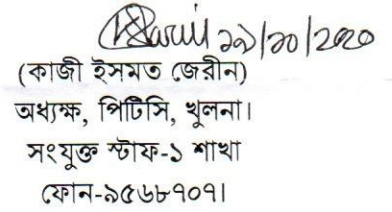 ২৯/১০/২০২০
(কাজী ইসমত জেরীন)
অধ্যক্ষ, পিটিসি, খুলনা।
সংযুক্ত স্টাফ-১ শাখা
ফোন-৯৫৬৮৭০৭।